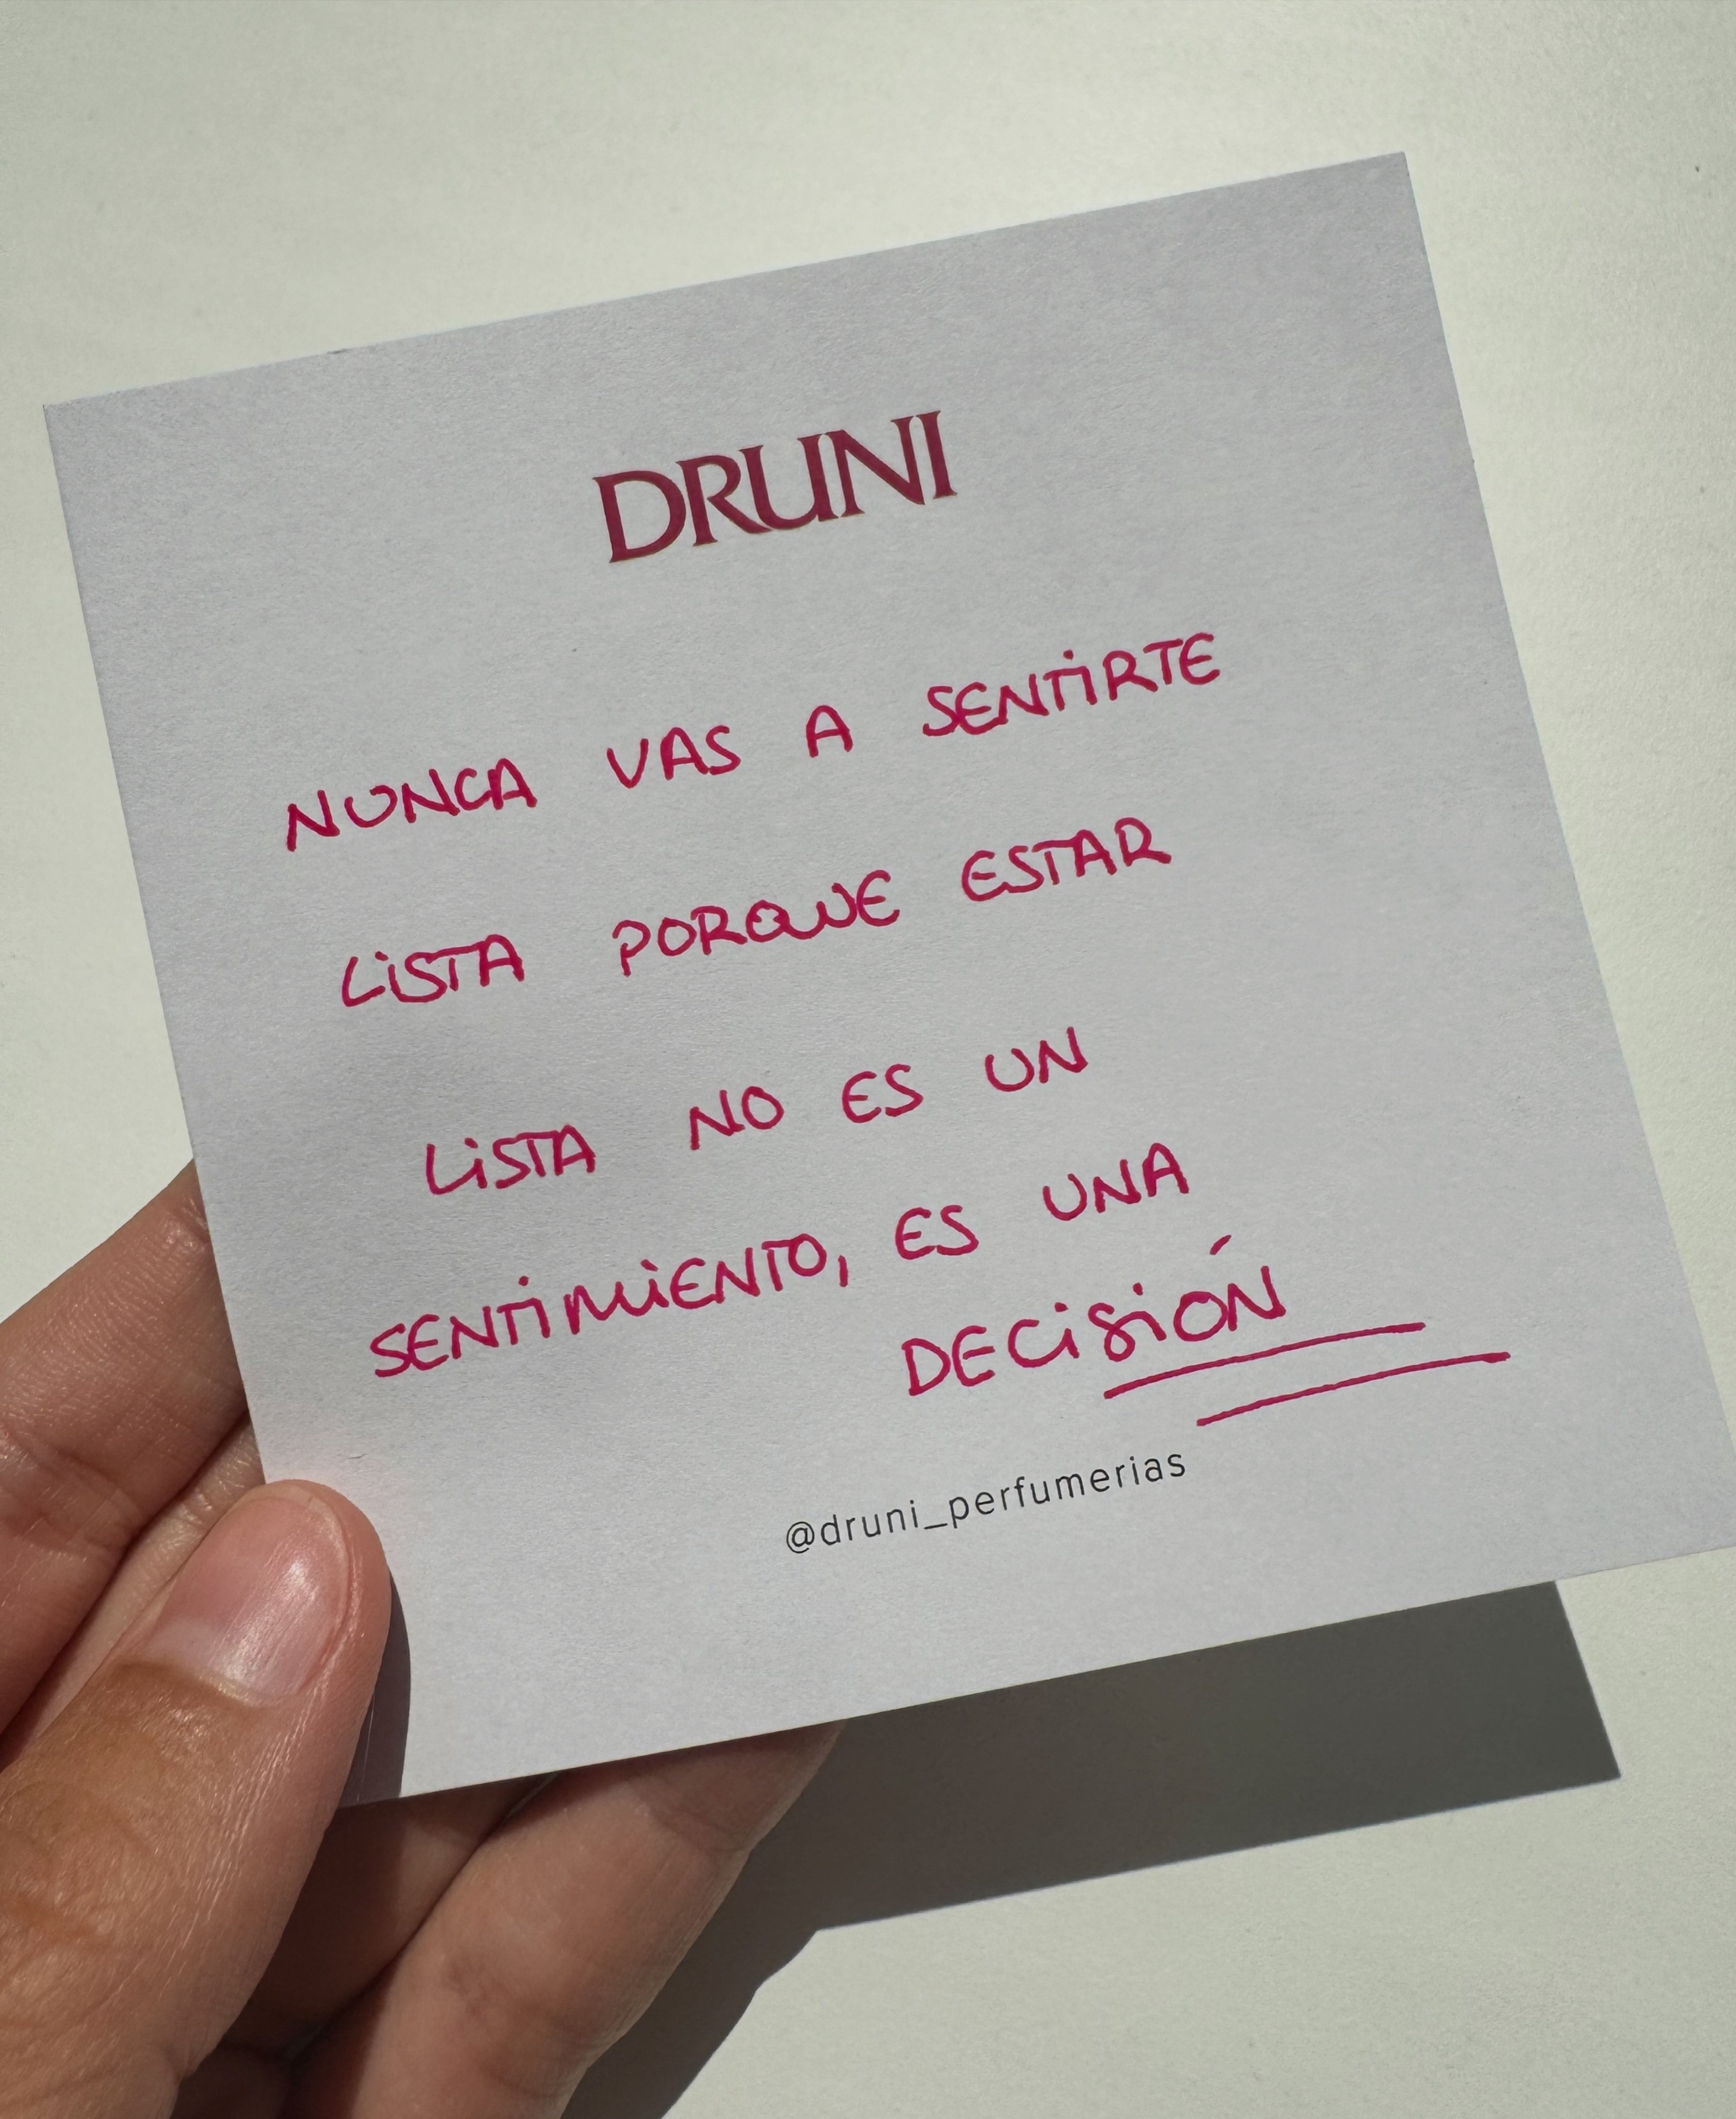 DRUNI
NUNCA VAS A SENTIRTE
LiSTA PORQUE ESTAR
LiSTA NO ES UN
SENTiMiENTO, ES UNA
DECiSiÓN
@druni_perfumerias